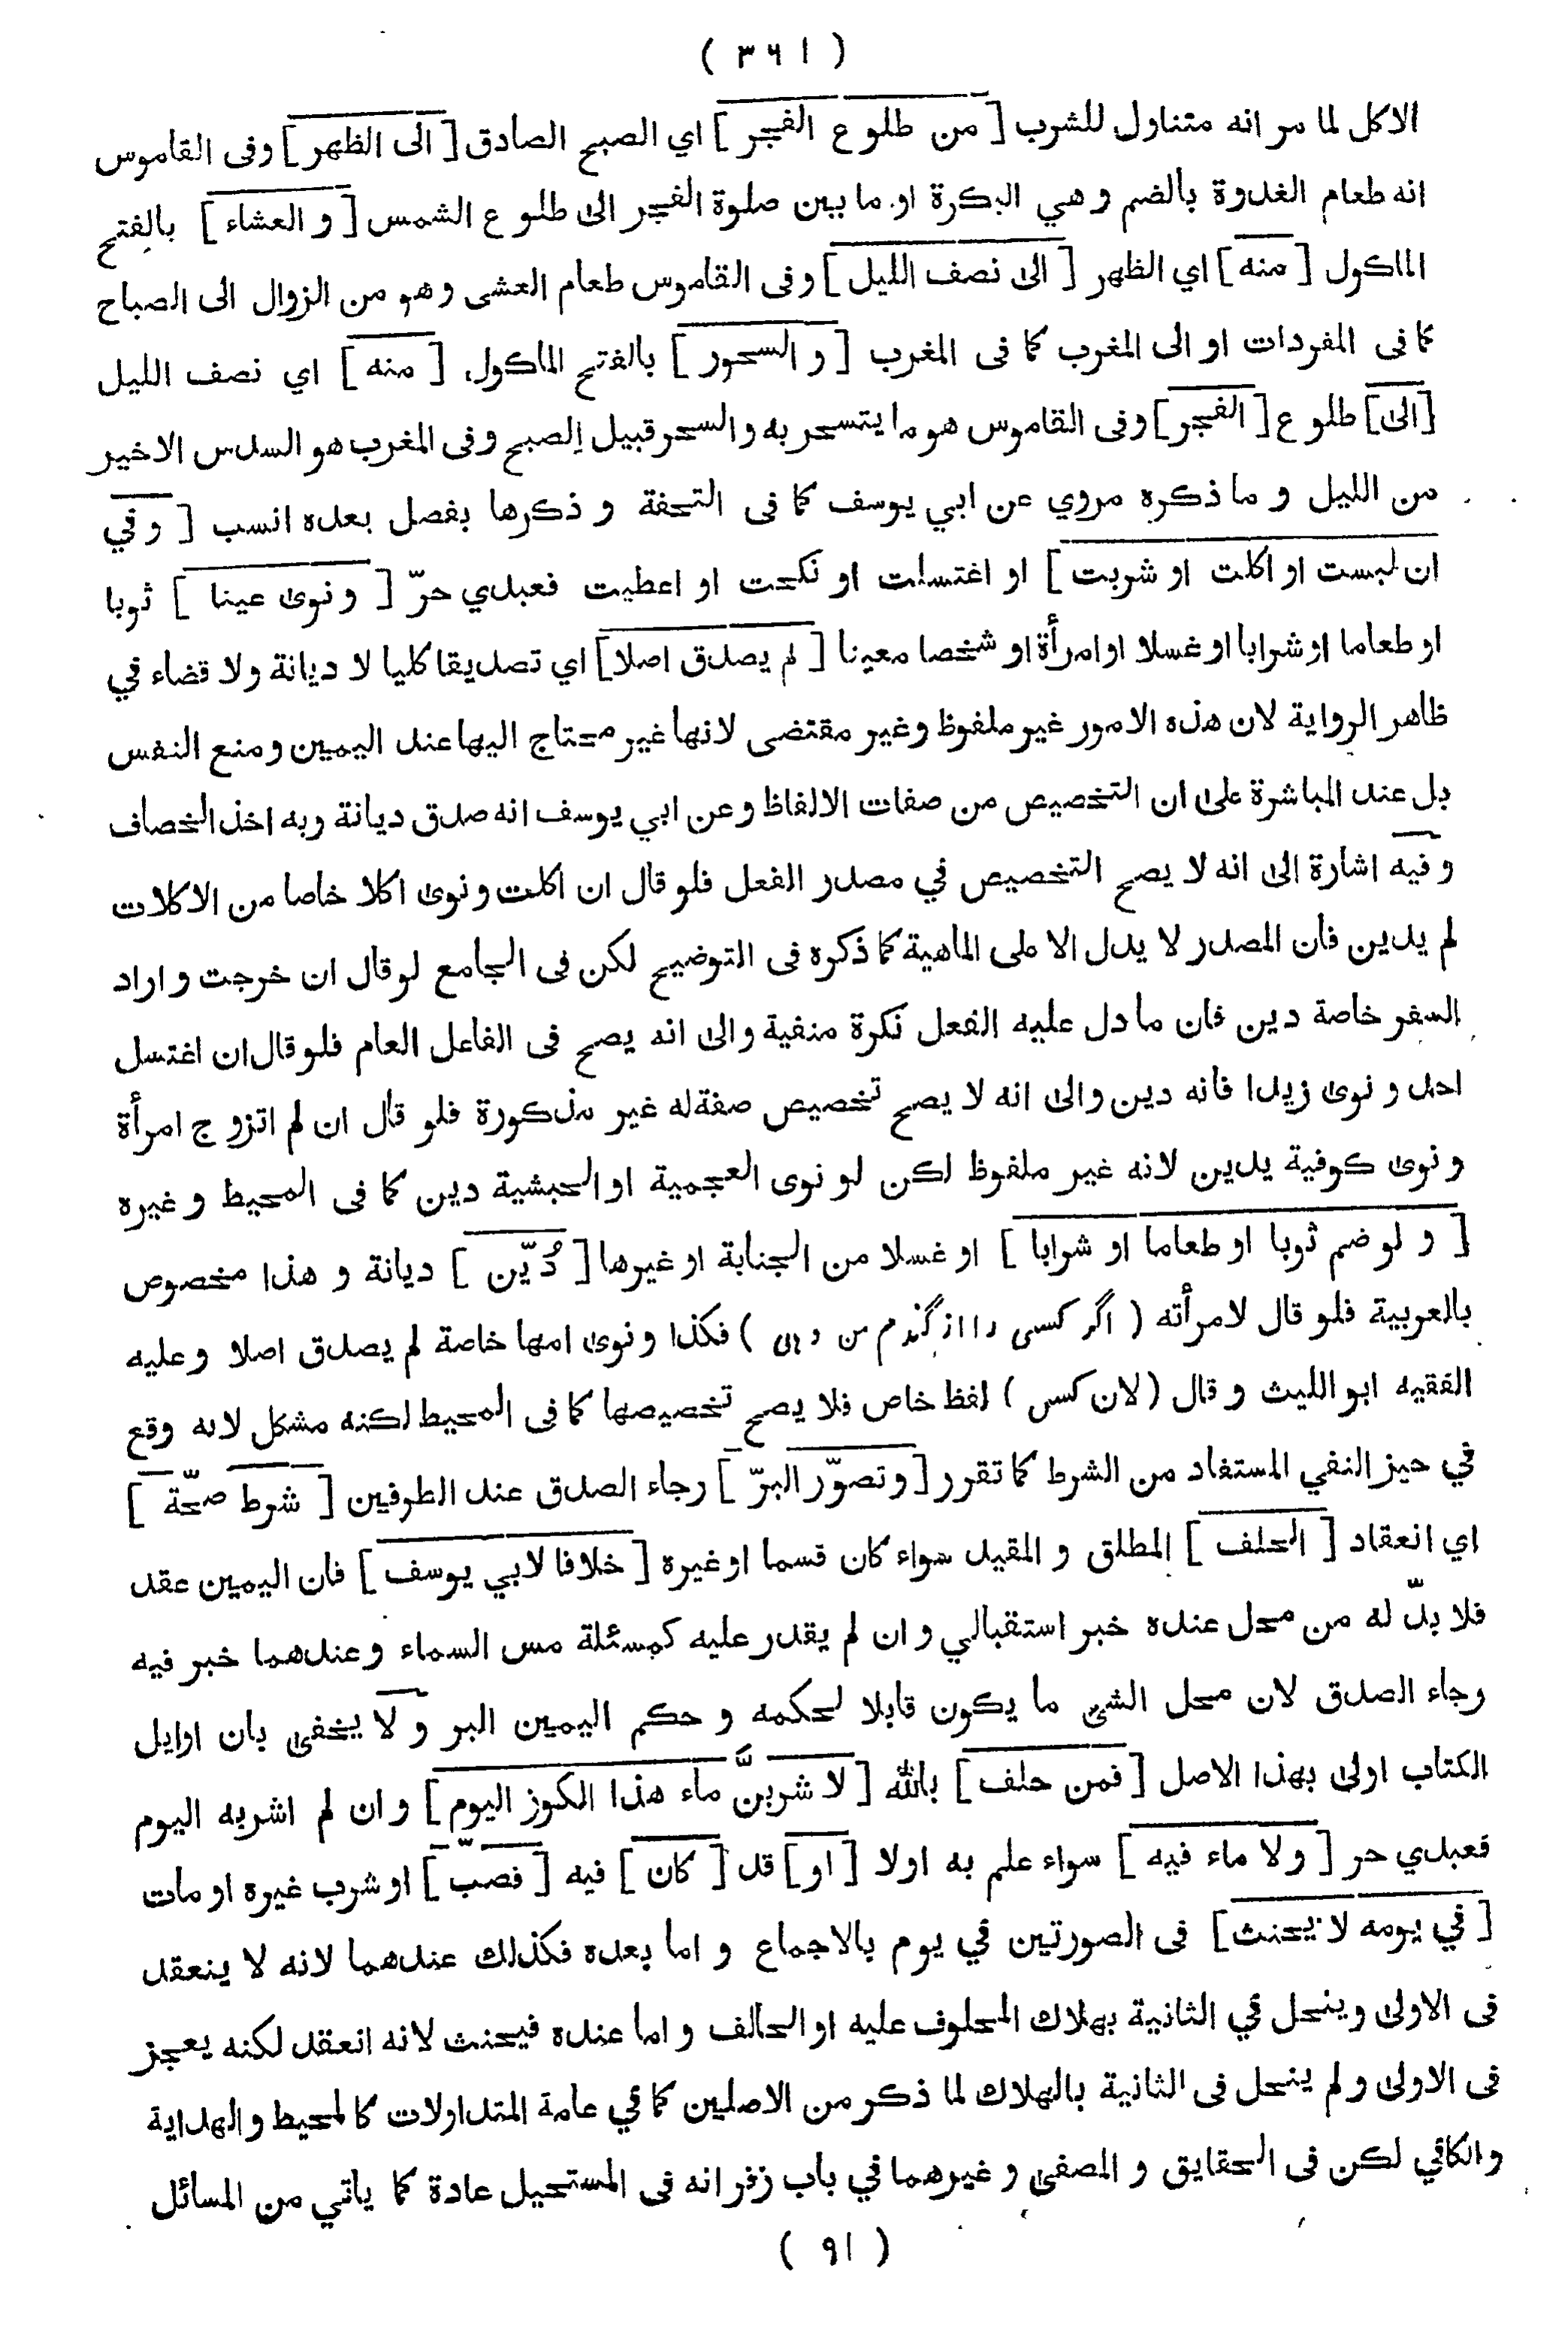 ( ٣٦١ )
الاكل لما مر انه متناول للشرب [ من طلوع الفجر ] اي الصبح الصادق [ الى الظهر ] وفى القاموس
انه طعام الغدوة بالضم وهي البكرة او ما بين صلوة الفجر الى طلوع الشمس [ و العشاء ] بالفتح
الماكول [ منه ] اي الظهر [ الى نصف الليل ] وفى القاموس طعام العشى وهو من الزوال الى الصباح
كما فى المفردات او الى المغرب كما فى المغرب [ و السحور ] بالفتح الماكول [ منه ] اي نصف الليل
[الى] طلوع [ الفجر ] وفى القاموس هو ما يتسحر به و السحر قبيل الصبح وفى المغرب هو السدس الاخير
من الليل و ما ذكره مروي عن ابي يوسف كما فى التحفة و ذكرها بفصل بعده انسب [ وفي
ان لبست او اكلت او شربت ] او اغتسلت او نكحت او اعطيت فعبدي حرّ [ و نوى عينا ] ثوبا
او طعاما او شرابا او غسلا او امرأة او شخصا معينا [ لم يصدق اصلا ] اي تصديقا كليا لا ديانة ولا قضاء في
ظاهر الرواية لان هذه الامور غير ملفوظ وغير مقتضى لانها غير محتاج اليها عند اليمين ومنع النفس
بل عند المباشرة على ان التخصيص من صفات الالفاظ وعن ابي يوسف انه صدق ديانة وبه اخذ الخصاف
وفيه اشارة الى انه لا يصح التخصيص في مصدر الفعل فلو قال ان اكلت ونوى اكلا خاصا من الاكلات
لم يدين فأن المصدر لا يدل الا على الماهية كما ذكره فى التوضيح لكن فى الجامع لو قال ان خرجت و اراد
السفر خاصة دين فان ما دل عليه الفعل نكرة منفية والى انه يصح فى الفاعل العام فلو قال ان اغتسل
احد و نوى زيدا فأنه دين والى انه لا يصح تخصيص صفة له غير مذكورة فلو قال ان لم اتزوج امرأة
و نوى كوفية يدين لانه غير ملفوظ لكن لو نوى العجمية او الحبشية دين كما فى المحيط و غيره
[ و لو ضم ثوبا او طعاما او شرابا ] او غسلا من الجنابة او غيرها [ دُيّن ] ديانة و هذا مخصوص
بالعربية فلو قال لامرأته ( اگر كسى را از گندم من دهى ) فكذا و نوى امها خاصة لم يصدق اصلا وعليه
الفقيه ابو الليث و قال ( لان كس ) لفظ خاص فلا يصح تخصيصها كما فى المحيط لكنه مشكل لانه وقع
في حيز النفي المستفاد من الشرط كما تقرر [ وتصوّر البرّ ] رجاء الصدق عند الطرفين [ شرط صحّة ]
اي انعقاد [ الحلف ] المطلق و المقيد سواء كان قسما او غيره [ خلافا لابي يوسف ] فان اليمين عقد
فلا بدّ له من محل عنده خبر استقبالي و ان لم يقدر عليه كمسئلة مس السماء وعندهما خبر فيه
رجاء الصدق لان محل الشئ ما يكون قابلا لحكمه و حكم اليمين البر و لا يخفى بان اوايل
الكتاب اولى بهذا الاصل [ فمن حلف ] بالله [ لا شربنَّ ماء هذا الكوز اليوم ] و ان لم اشربه اليوم
فعبدي حر [ ولا ماء فيه ] سواء علم به اولا [ او ] قد [ كان ] فيه [ فصبّ ] او شرب غيره او مات
[ في يومه لا يحنث ] فى الصورتين في يوم بالاجماع و اما بعده فكذلك عندهما لانه لا ينعقد
فى الاولى وينحل في الثانية بهلاك المحلوف عليه او الحالف و اما عنده فيحنث لانه انعقد لكنه يعجز
فى الاولى و لم ينحل فى الثانية بالهلاك لما ذكر من الاصلين كما في عامة المتداولات كالمحيط و الهداية
والكافي لكن فى الحقايق و المصفى و غيرهما في باب زفر انه فى المستحيل عادة كما ياتي من المسائل
( ٩١ )